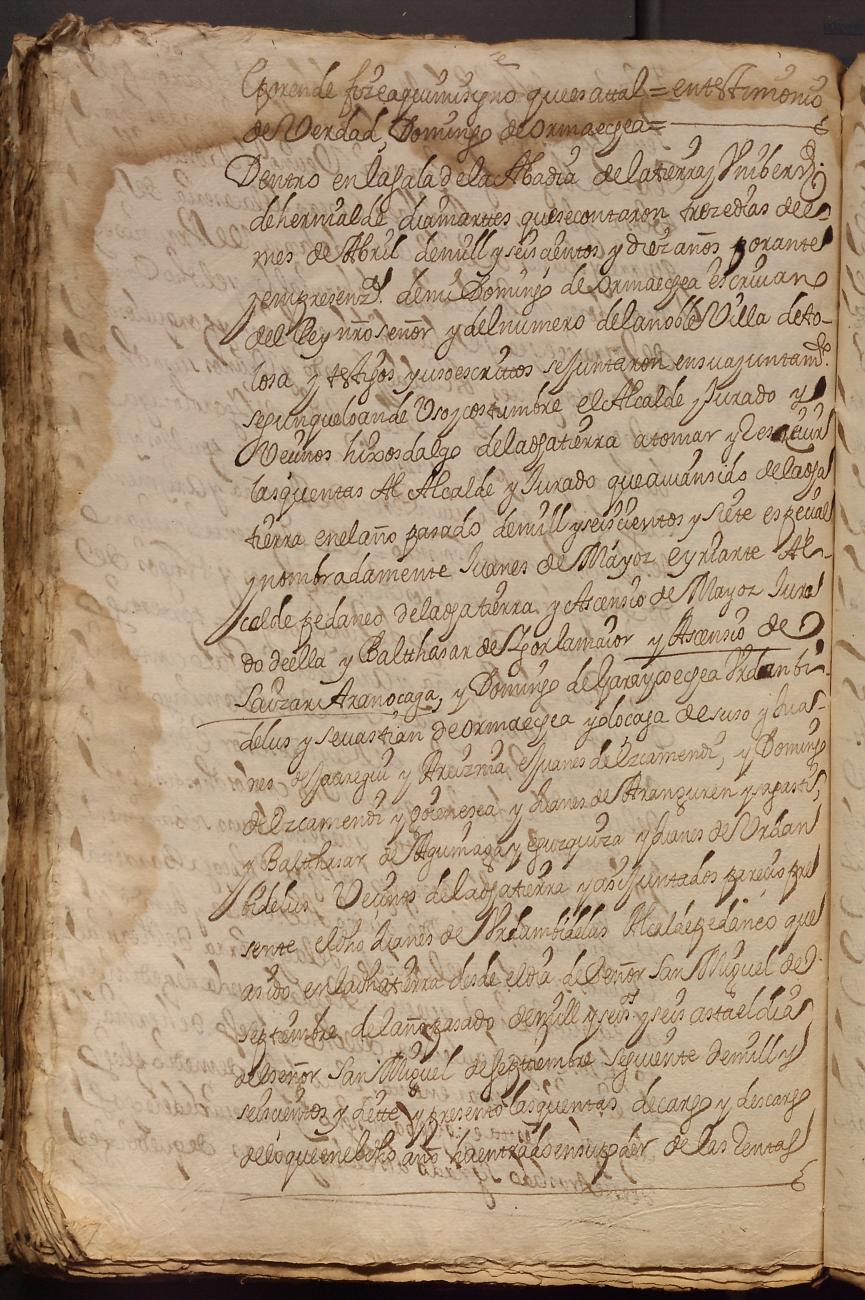 Eporende fize aqui mi signo que es a tal = en testimonio
de Verdad Domingo de ormaechea =
Dentro en la sala de la Abadia de la tierra y Vnibersd.
de hernialde dia martes que se contaron treze dias del
mes de Abril de mill y seiscientos y diez años por ante
y en presenzia de mi Domingo de Ormaechea escriuano
del Rey nro señor y del numero de la noble Villa de to-
losa y testigos yuso escritos se juntaron en su ajuntamto
segun que lo an de Vso y costumbre el Alcalde y Jurado y
Vecinos hijosdalgo de la dha tierra a tomar y Resceuir
las quentas Al Alcalde y Jurado que auian sido de la dha
tierra en el año pasado de mill y seiscientos y siete especial
y nombradamente Juanes de Mayoz eyriarte Al-
calde pedaneo de la dha tierra y Ascensio de Mayoz Jura
do de ella y Balthasar de yorlamaior y Ascensio de
Sauzar Aranocaga, y Domingo de Garaycoechea Vrdanbi-
delus y seuastian de ormaechea y docaga de suso y Jua-
nes de Jauregui y Areizma e Juanes de Ezcamendi, y Domingo
de Ezcamendi y goienechea y Juanes de Aranguren y
y Balthasar de Aguinaga y eguzquiza y Juanes de Vrdan
bidelus Vecinos de la dha tierra y asi juntados parecio pre
sente el dho Juanes de Vrdambidelus Alcalde pedaneo que
a sido en la dha tierra desde el dia de Señor San Miguel de
septiembre del año pasado de mill y seisos y seis asta el dia
del señor San Miguel de septiembre seguiente de mill y
seiscientos y siette y presento las quentas de cargo y descargo
de lo que en el dho año ha entrado en su poder de las Rentas